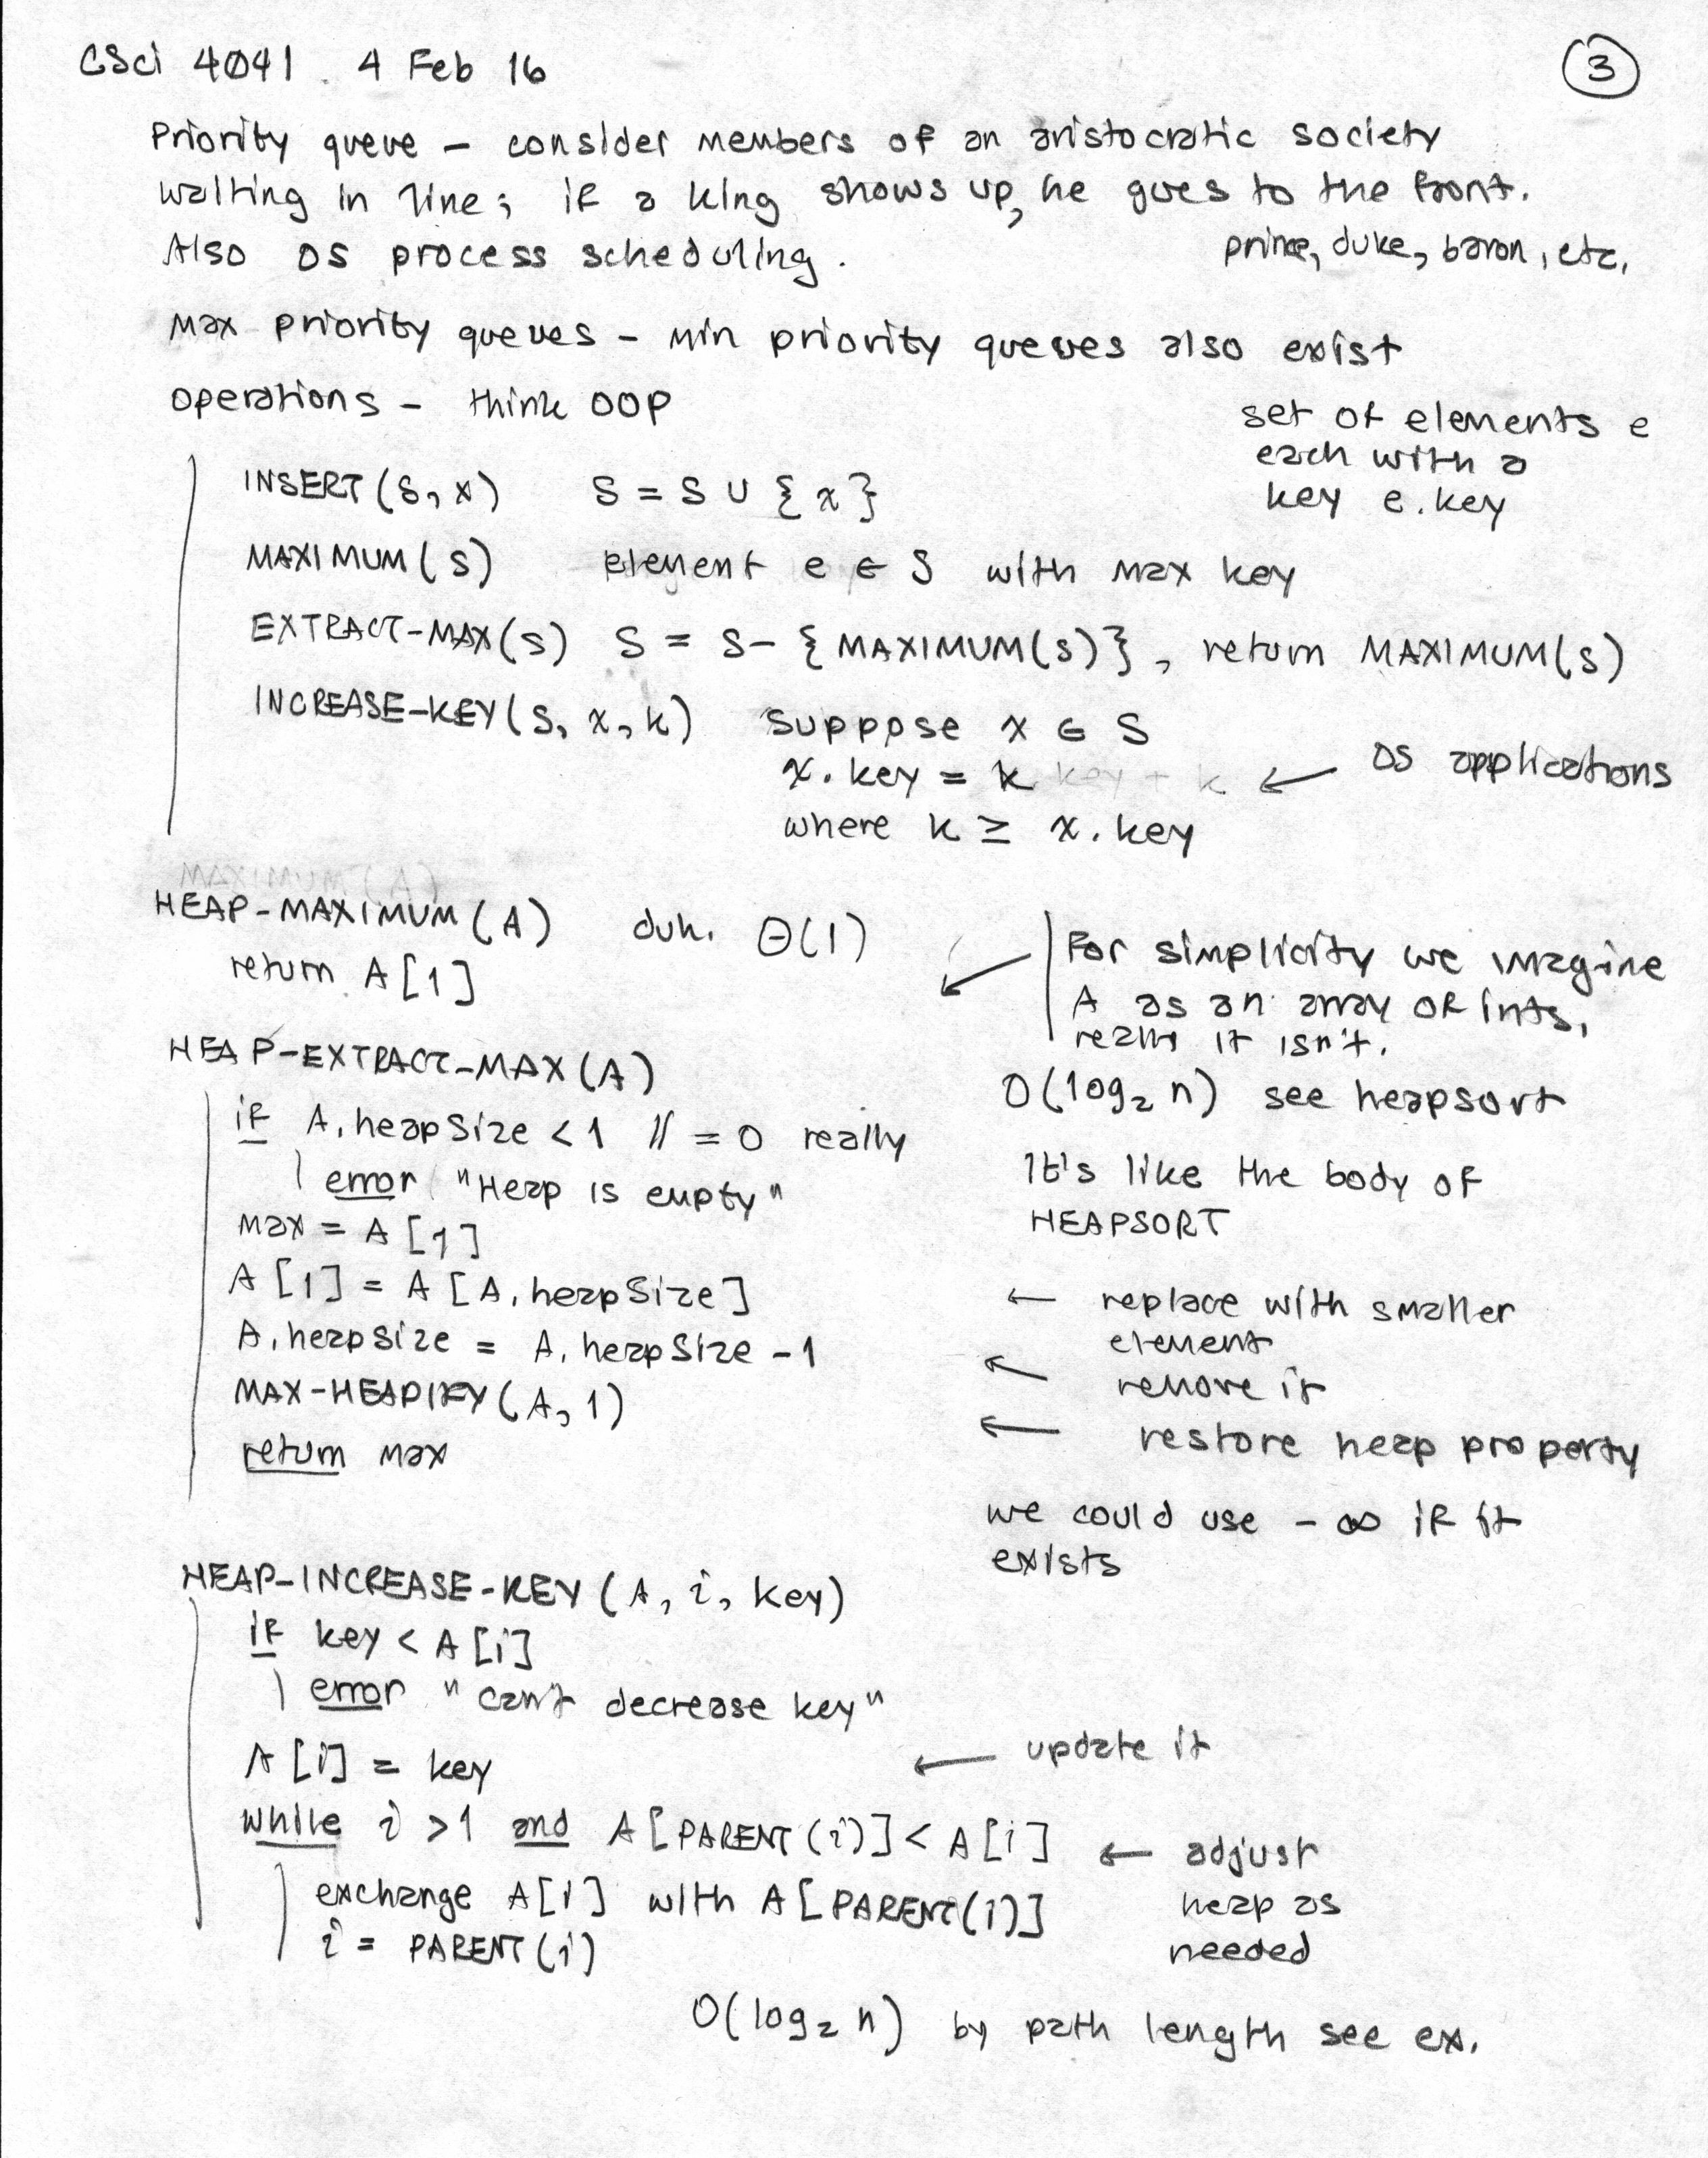 CSci 4041. 4 Feb 16
3
Priority queue – consider members of an aristocratic society
waiting in line; if a king shows up, he goes to the front.
Also OS process scheduling.
prince, duke, baron, etc.
Max priority queues – min priority queues also exist
Operations – think OOP
set of elements e
each with a
key e.key
INSERT(S, x) S = S ∪ {x}
MAXIMUM(S) element e ∈ S with max key
EXTRACT-MAX(S) S = S – {MAXIMUM(S)}, return MAXIMUM(S)
INCREASE-KEY(S, x, k) suppose x ∈ S
x.key = k ← OS applications
where k ≥ x.key
HEAP-MAXIMUM(A) duh. Θ(1)
return A[1]
For simplicity we imagine
A as an array of ints,
really it isn't.
HEAP-EXTRACT-MAX(A)
O(log₂ n) see heapsort
if A.heapSize < 1 // = 0 really
error "Heap is empty"
It's like the body of
HEAPSORT
max = A[1]
A[1] = A[A.heapSize] ← replace with smaller
element
A.heapSize = A.heapSize – 1 ← remove it
MAX-HEAPIFY(A, 1) ← restore heap property
return max
we could use – ∞ if it
exists
HEAP-INCREASE-KEY(A, i, key)
if key < A[i]
error "can't decrease key"
A[i] = key ← update it
while i > 1 and A[PARENT(i)] < A[i] ← adjust
heap as
needed
exchange A[i] with A[PARENT(i)]
i = PARENT(i)
O(log₂ n) by path length see ex.